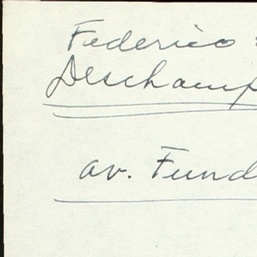 Federico
Deschamp
av. Fund